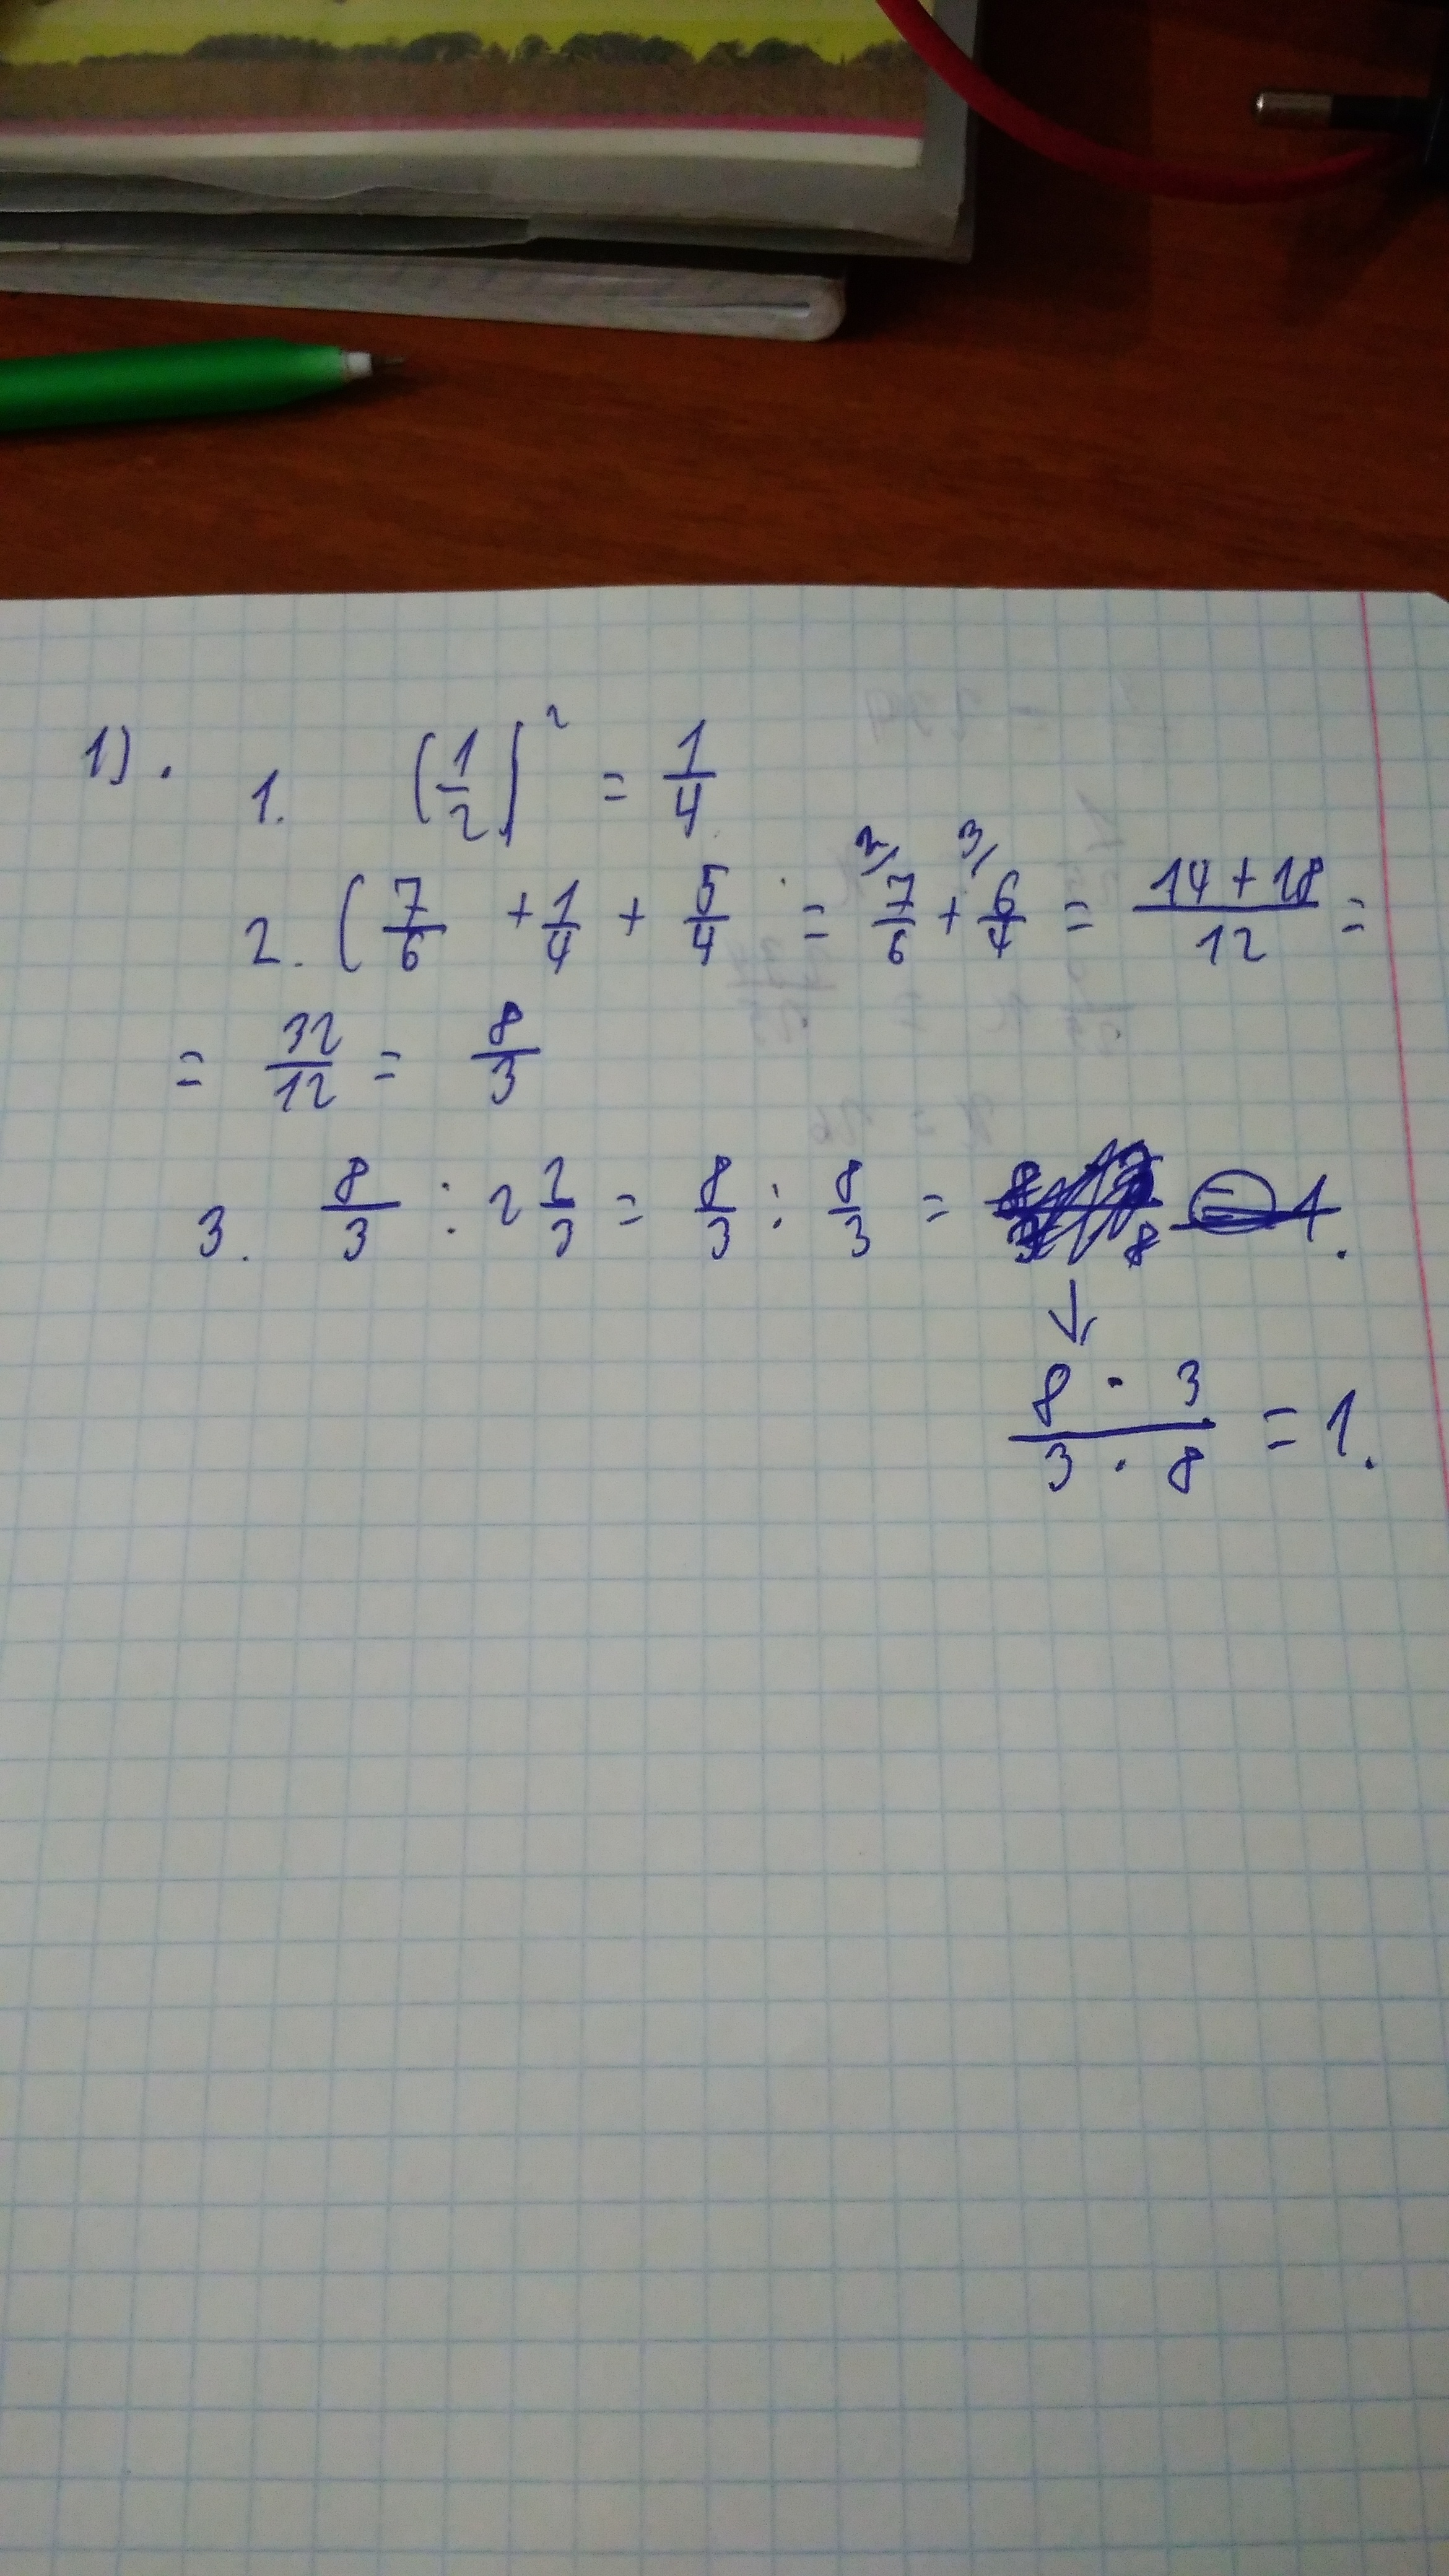 1). 1. (1/2)² = 1/4
2. (7/6 + 1/4 + 5/4 = 2/ 7/6 + 3/ 6/4 = 14+18/12 =
= 32/12 = 8/3
3. 8/3 : 2 2/3 = 8/3 : 8/3 =
↓
8 · 3 / 3 · 8 = 1.